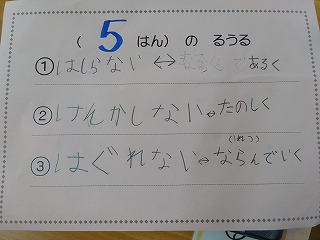 ( 5 はん) の るうる
①はしらない ↔ であるく
②けんかしない⇔たのしく
(1れつ)
③はぐれない⇔ならんでいく